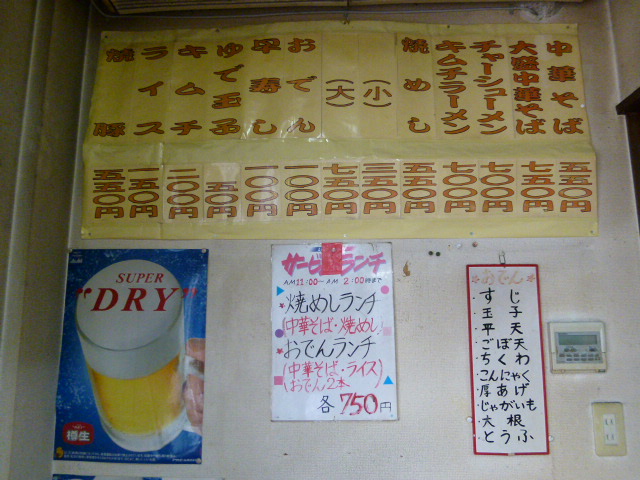 中華そば 五五〇円
大盛中華そば 七五〇円
チャーシューメン 七〇〇円
キムチラーメン 七〇〇円
焼めし 五五〇円
(小) 三五〇円
(大) 七五〇円
おでん 一〇〇円
早寿し 一〇〇円
ゆで玉子 五〇円
キムチ 二〇〇円
ライス 一五〇円
焼豚 五五〇円
SUPER
"DRY"
樽生
サービスランチ
AM11:00~AM2:00時まで
焼めしランチ
(中華そば・焼めし)
おでんランチ
(中華そば・ライス
おでん2本)
各750円
おでん
・すじ
・玉子
・平天
・ごぼ天
・ちくわ
・こんにゃく
・厚あげ
・じゃがいも
・大根
・とうふ